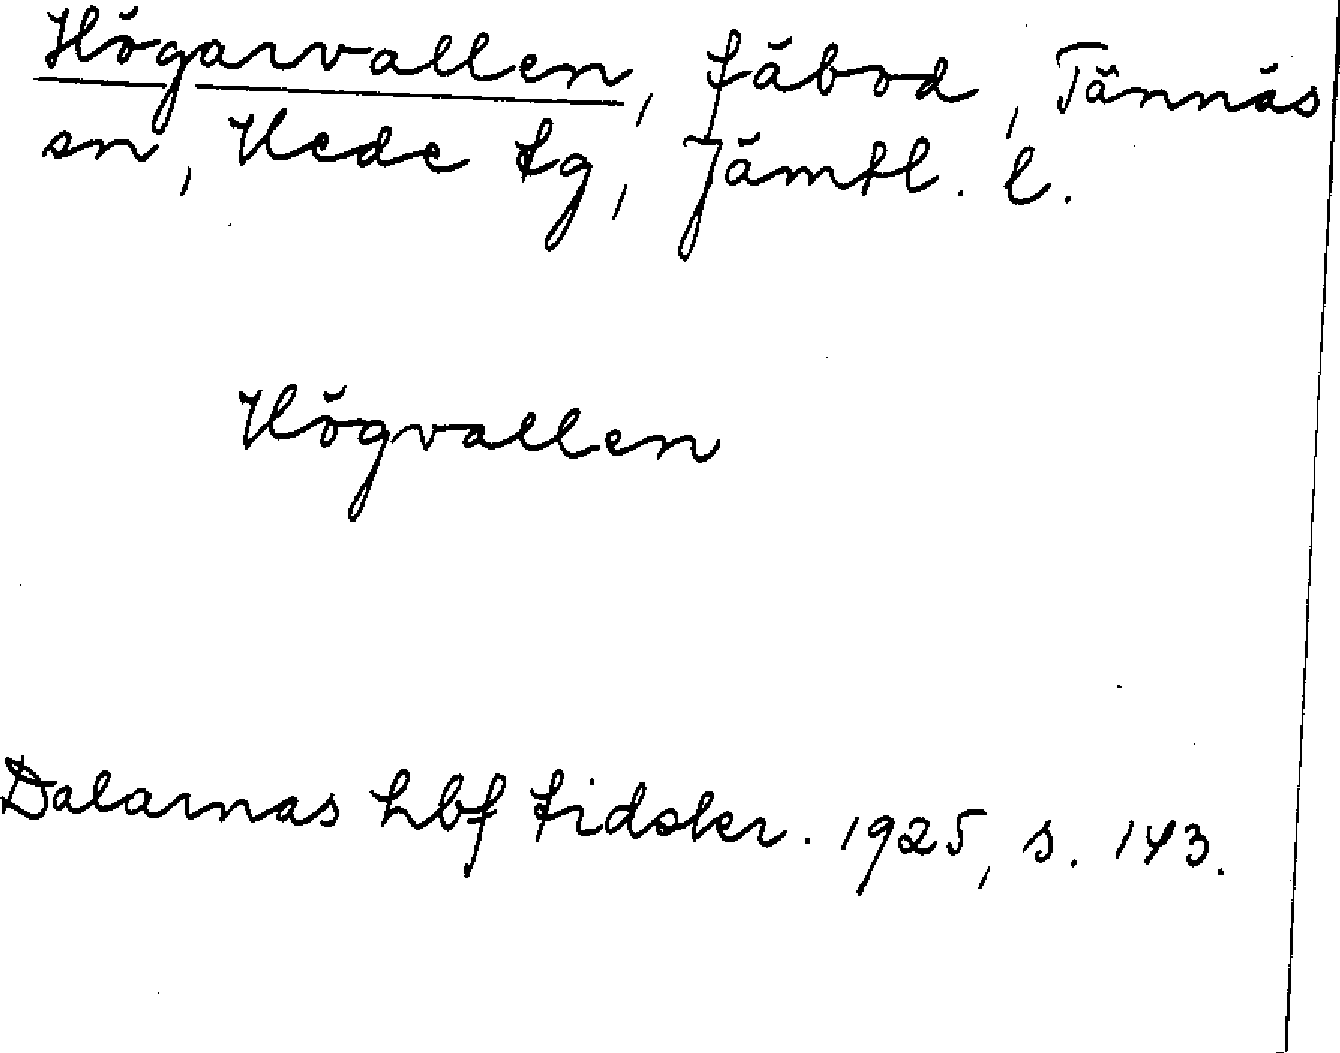 Högarvallen, fäbod, Tännäs
sn, Hede tg, Jämtl. l.
Högvallen
Dalarnas hbf tidskr. 1925, s. 143.